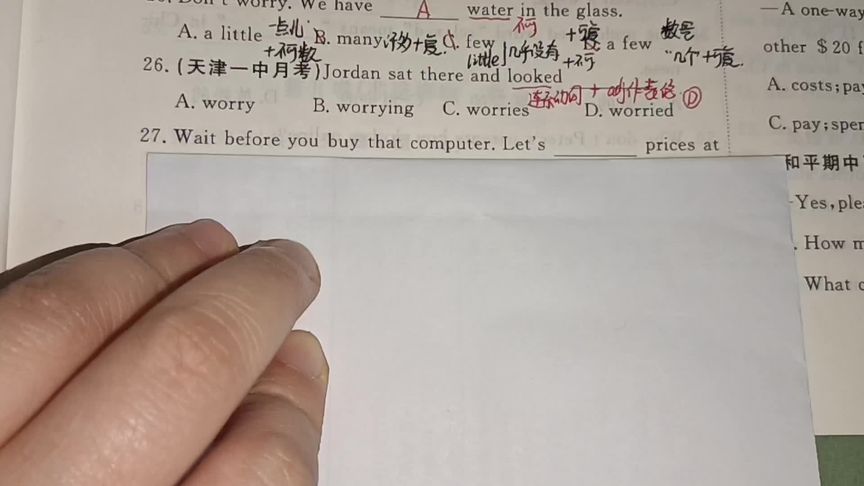 Don't worry. We have A water in the glass.
不可
A. a little 一点儿 B. many 许多+复. C. few +复 D. a few 数名
+不可数 little 几乎没有 +不可 "几个+复.
26. (天津一中月考)Jordan sat there and looked
连系动词 + adj作表语 Ⓓ
A. worry B. worrying C. worries D. worried
27. Wait before you buy that computer. Let's ________ prices at
—A one-way
other $20 f
A. costs; pa
C. pay; spen
和平期中
-Yes, ple
. How m
What c